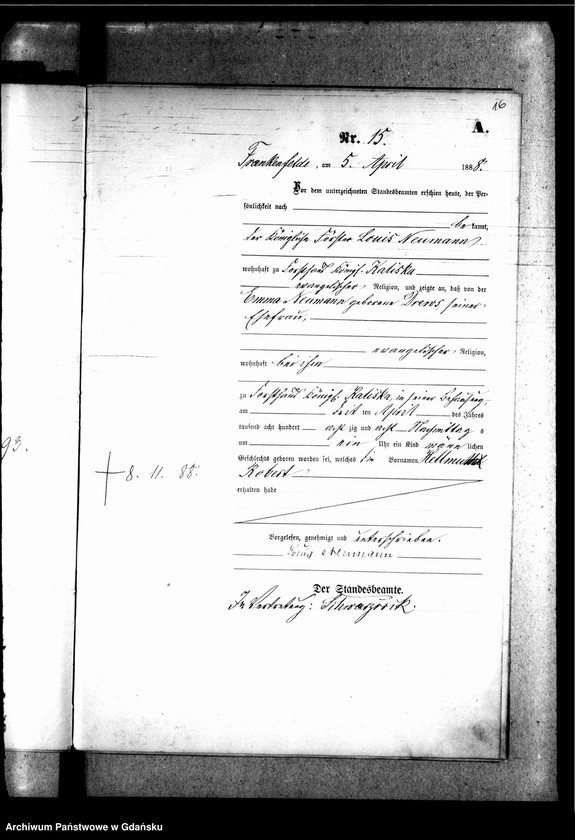 16
A.
Nr. 15.
Frankenfelde, am 5. April 1888.
Vor dem unterzeichneten Standesbeamten erschien heute, der Per-
sönlichkeit nach
be kannt,
der Königliche Förster Louis Neumann
wohnhaft zu Forsthaus Königl. Kaliska
evangelischer Religion, und zeigte an, daß von der
Emma Neumann geborene Drews seiner
Ehefrau,
evangelischer Religion,
wohnhaft bei ihm
zu Forsthaus Königl. Kaliska, in seiner Behausung,
am ten April des Jahres
tausend acht hundert acht zig und acht Nachmittag s
um ein Uhr ein Kind männ lichen
Geschlechts geboren worden sei, welches die Vornamen Hellmuth
Robert
erhalten habe
Vorgelesen, genehmigt und unterschrieben.
Louis Neumann
Der Standesbeamte.
In Vertretung:
93.
8. 11. 88.
Archiwum Państwowe w Gdańsku